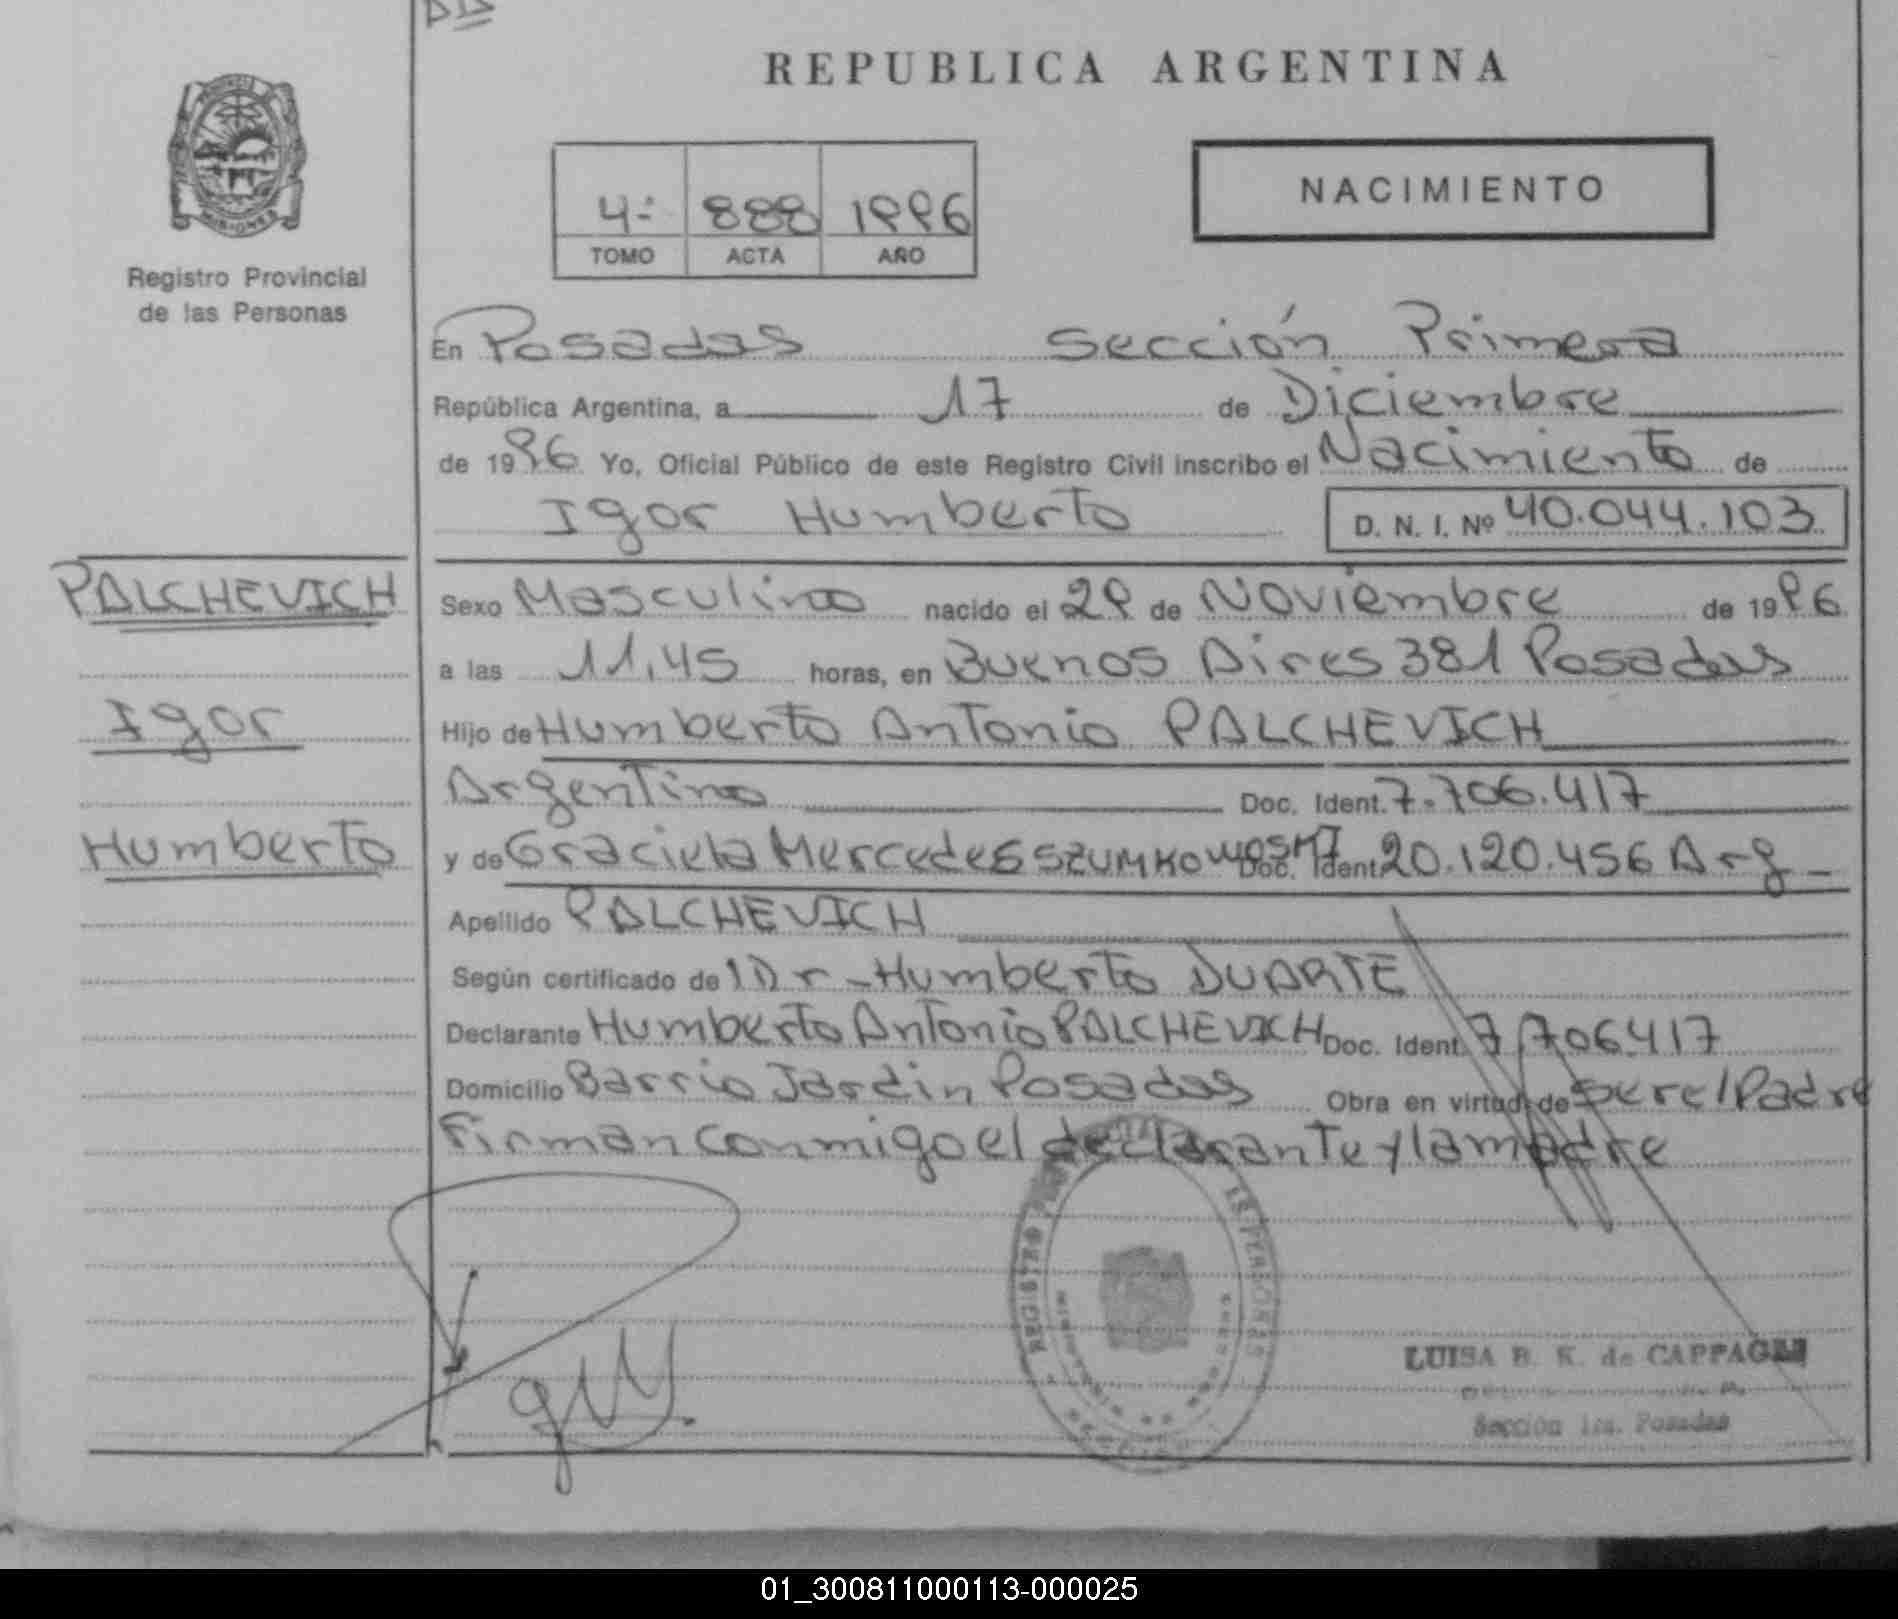 REPUBLICA ARGENTINA
MISIONES
Registro Provincial
de las Personas
4-
888
1996
TOMO
ACTA
AÑO
NACIMIENTO
En Posadas Sección Primera
República Argentina, a 17 de Diciembre
de 1996 Yo, Oficial Público de este Registro Civil inscribo el Nacimiento de
Igor Humberto D. N. I. Nº 40.044.103
PALCHEVICH
Igor
Humberto
Sexo Masculino nacido el 29 de Noviembre de 1996
a las 11,45 horas, en Buenos Aires 381 Posadas
Hijo de Humberto Antonio PALCHEVICH
Argentino Doc. Ident. 7.706.417
y de Graciela Mercedes SZUMKOWSKI Doc. Ident. 20.120.456 Arg
Apellido PALCHEVICH
Según certificado de Dr - Humberto DUARTE
Declarante Humberto Antonio PALCHEVICH Doc. Ident. 7706417
Domicilio Barrio Jardin Posadas Obra en virtud de ser el Padre
Firman conmigo el declarante y la madre
REGISTRO
LUISA B. K. de
Sección 1ra. Posadas
01_300811000113-000025